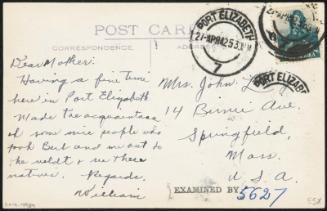 POST CARD
CORRESPONDENCE
ADDRESS
PORT ELIZABETH
7
PORT ELIZABETH
Dear Mother:
Having a fine time
here in Port Elizabeth
Made the acquaintance
of some nice people who
took Bert and me out to
the veldt to see these
natives. Regards,
William
Mrs. John
14 Bernie Ave.
Springfield,
Mass.
U.S.A.
EXAMINED BY
5627